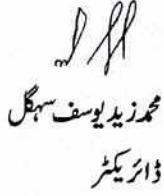 محمد زید یوسف سہگل
ڈائریکٹر